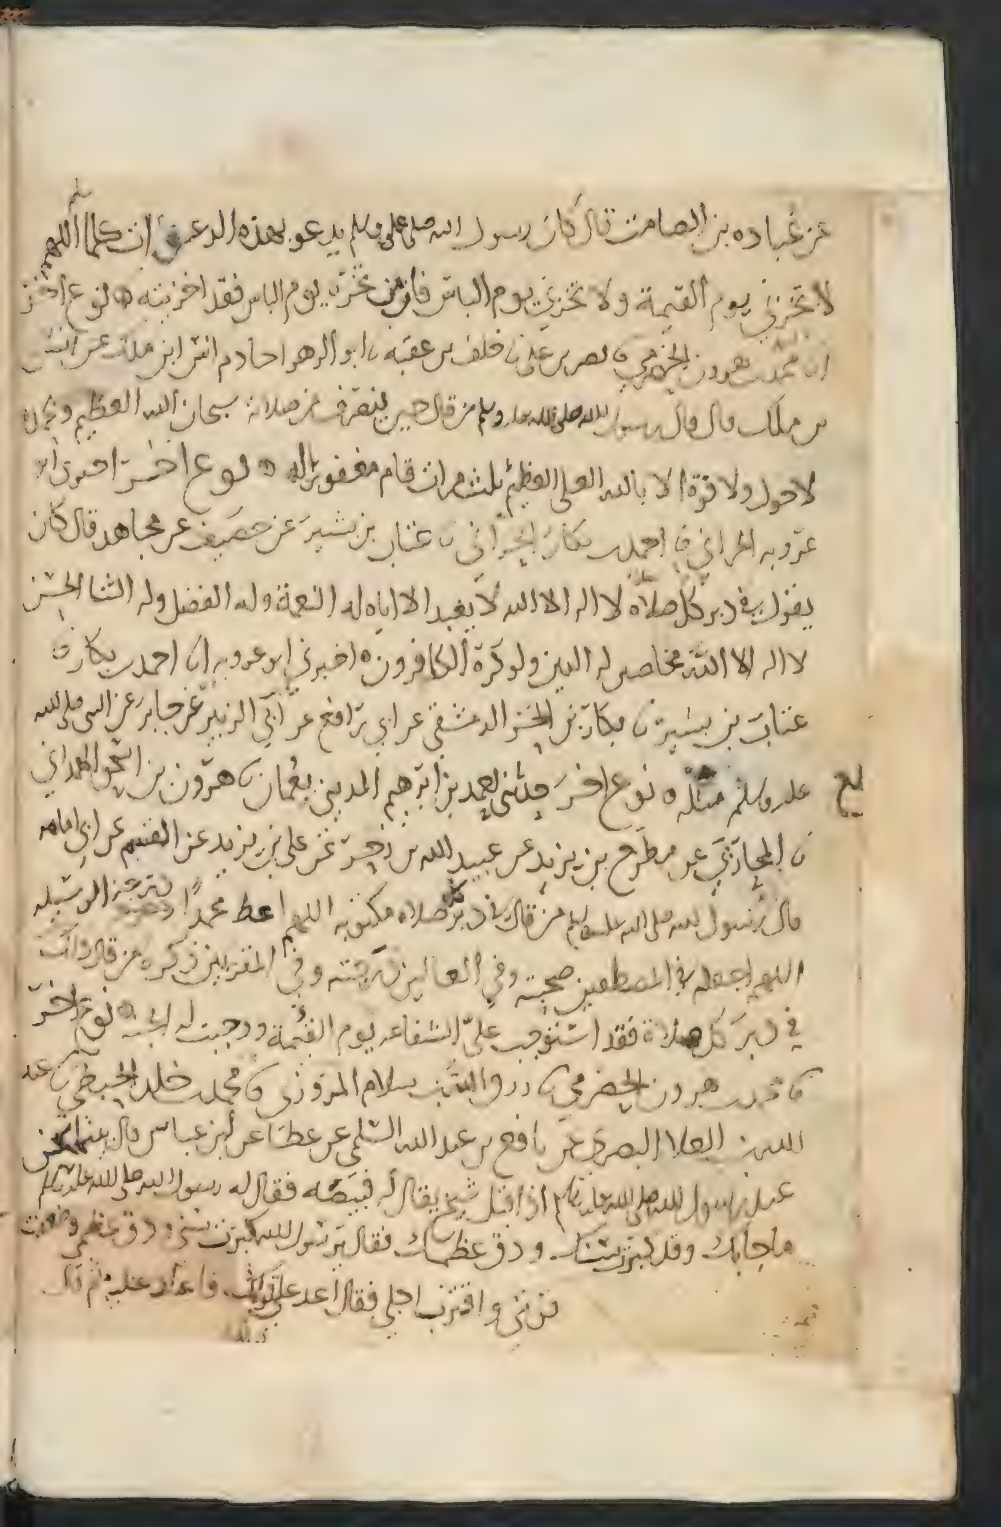 عن عباده بن الصامت قال كان رسول الله صلى الله عليه وسلم يدعو بهذه الدعوات كلما سلم اللهم
لا تخزني يوم القيمة ولا تخزني يوم الباس فان من تخزه يوم الباس فقد اخزيته نوع اخر
انا محمد بن هرون الحضرمي نا نصر بن علي نا خلف بن عقبه نا ابو الزهرا خادم انس ابن ملك عن انس
بن ملك قال قال رسول الله صلى الله عليه وسلم من قال حين ينصرف من صلاته سبحان الله العظيم وبحمده
لا حول ولا قوة الا بالله العلي العظيم ثلث مرات قام مغفور له نوع اخر اخبرني ابو
عروبه الحراني نا احمد بن بكار الحراني نا عتاب بن بشير عن خصيف عن مجاهد قال كان
يقول في دبر كل صلاة لا اله الا الله لا يعبد الا اياه له النعمة وله الفضل وله الثنا الحسن
لا اله الا الله مخلصين له الدين ولو كره الكافرون اخبرني ابو عروبه انا احمد بن بكار نا
عتاب بن بشير نا بكار بن الحسن الدمشقي عن ابي رافع عن ابي الزبير عن جابر عن النبي صلى الله
عليه وسلم مثله نوع اخر حدثني محمد بن ابراهيم المديني بعمان نا هرون بن اسحق الهمداني
نا المحاربي عن مطرح بن يزيد عن عبيد الله بن زحر عن علي بن يزيد عن القسم عن ابي امامه
قال رسول الله صلى الله عليه وسلم من قال في دبر كل صلاه مكتوبه اللهم اعط محمدا الوسيله
اللهم اجعله في المصطفين صحبته وفي العالين درجته وفي المقربين ذكره من قال ذلك
في دبر كل صلاة فقد استوجب علي الشفاعه يوم القيمة ووجبت له الجنه نوع اخر
نا محمد بن هرون الحضرمي نا سلام المروزي نا محمد بن خلد الحبطي نا عبد
الله بن العلا البصري عن نافع بن عبد الله السلمي عن عطا عن ابن عباس قال بينما نحن
عند رسول الله صلى الله عليه وسلم اذ اقبل شيخ يقال له قبيصه فقال له رسول الله صلى الله عليه وسلم
ما جا بك وقد كبرت سنك ودق عظمك فقال يرسول الله كبرت سني ودق عظمي وضعفت
قوتي واقترب اجلي فقال اعد علي قولك فاعاد عليه ثم قال